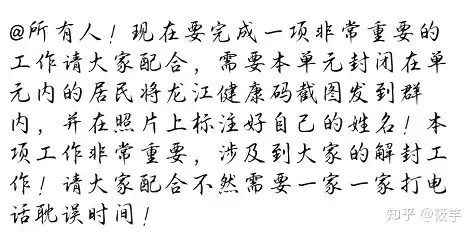 @所有人！现在要完成一项非常重要的
工作请大家配合，需要本单元封闭在单
元内的居民将龙江健康码截图发到群
内，并在照片上标注好自己的姓名！本
项工作非常重要，涉及到大家的解封工
作！请大家配合不然需要一家一家打电
话耽误时间！
知乎 @薇芋